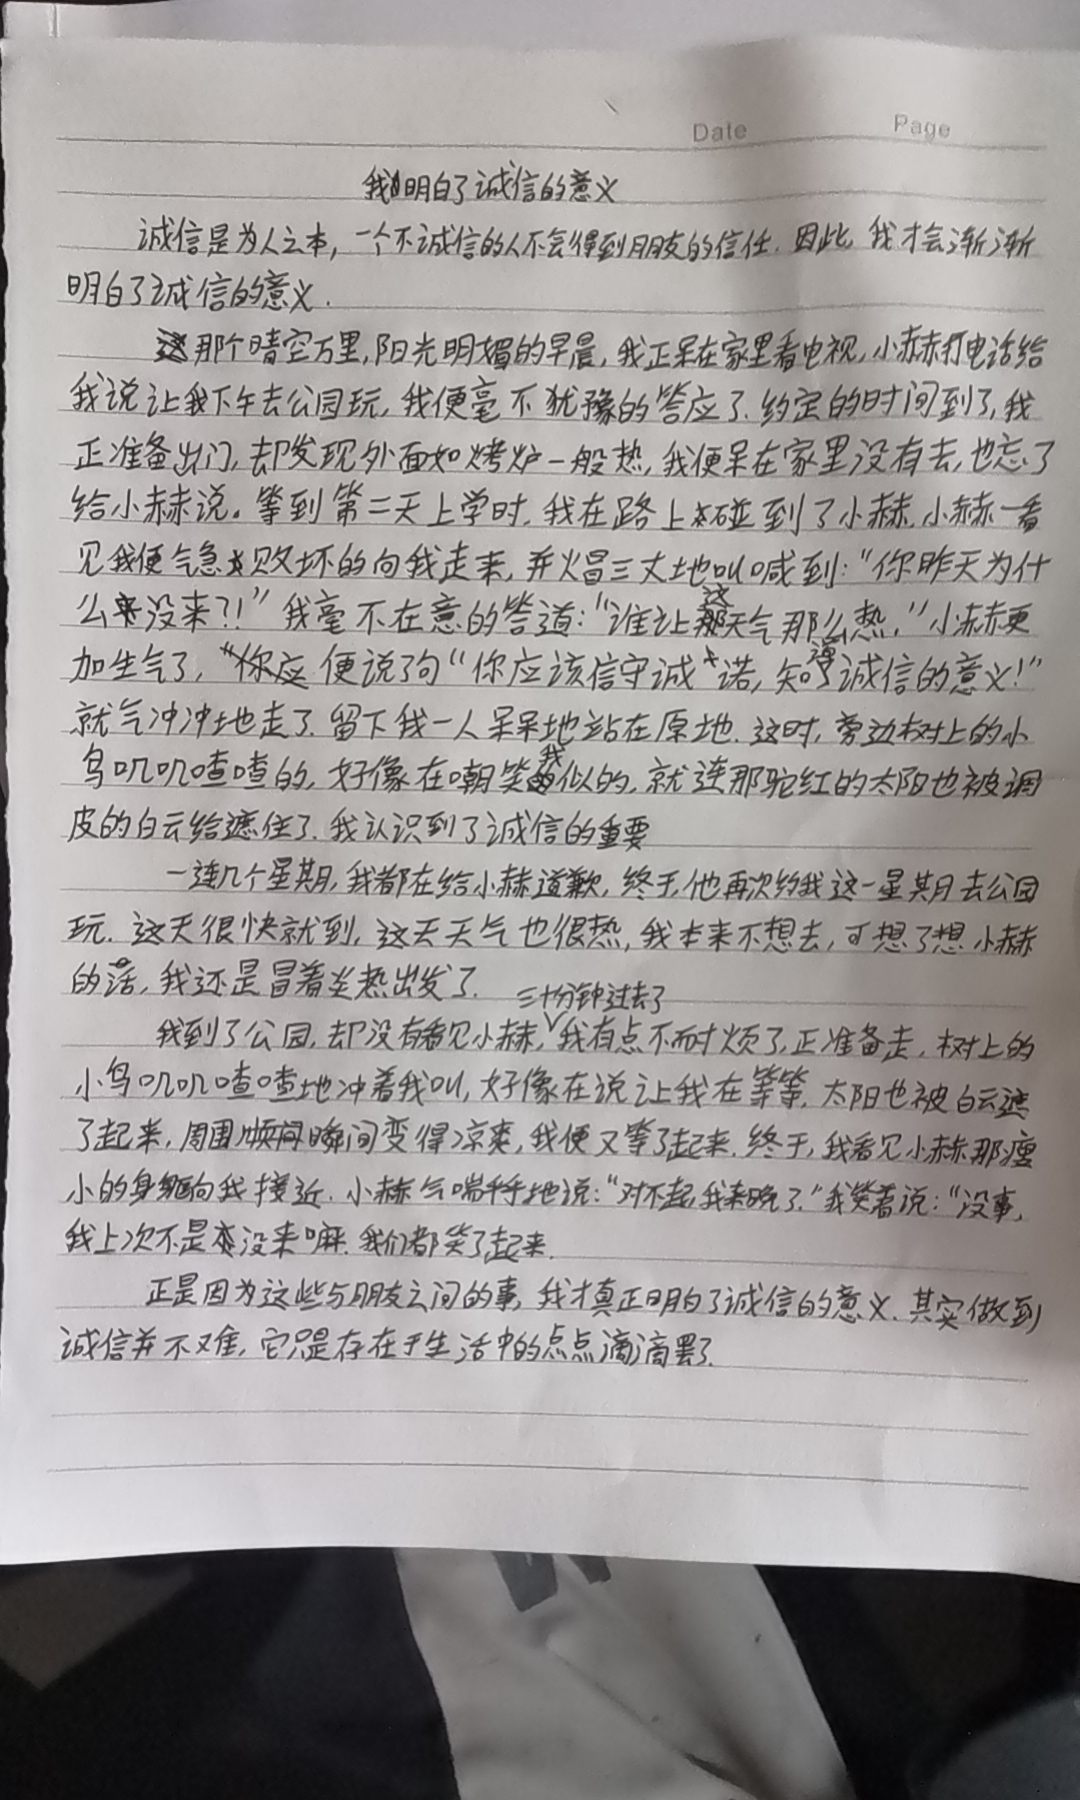 Date Page
我明白了诚信的意义
诚信是为人之本，一个不诚信的人不会得到朋友的信任.因此,我才会渐渐
明白了诚信的意义.
那个晴空万里,阳光明媚的早晨,我正呆在家里看电视,小赫赫打电话给
我说让我下午去公园玩,我便毫不犹豫的答应了.约定的时间到了,我
正准备出门,却发现外面如烤炉一般热,我便呆在家里没有去,也忘了
给小赫说。等到第二天上学时,我在路上碰到了小赫.小赫一看
见我便气急败坏的向我走来,并火冒三丈地叫喊到:“你昨天为什
么没来?!”我毫不在意的答道:“谁让这天气那么热.”小赫更
加生气了,便说了句“你应该信守诚诺,知道诚信的意义!”
就气冲冲地走了.留下我一人呆呆地站在原地.这时,旁边树上的小
鸟叽叽喳喳的,好像在嘲笑我似的,就连那驼红的太阳也被调
皮的白云给遮住了.我认识到了诚信的重要
一连几个星期,我都在给小赫道歉,终于,他再次约我这一星期去公园
玩.这天很快就到,这天天气也很热,我本来不想去,可想了想小赫
的话,我还是冒着炎热出发了.
我到了公园,却没有看见小赫,三十分钟过去了我有点不耐烦了,正准备走,树上的
小鸟叽叽喳喳地冲着我叫,好像在说让我在等等.太阳也被白云遮
了起来,周围瞬间变得凉爽,我便又等了起来.终于,我看见小赫那瘦
小的身躯向我接近.小赫气喘吁吁地说:“对不起,我来晚了.”我笑着说:“没事,
我上次不是没来嘛.我们都笑了起来.
正是因为这些与朋友之间的事,我才真正明白了诚信的意义.其实做到
诚信并不难,它只是存在于生活中的点点滴滴罢了.